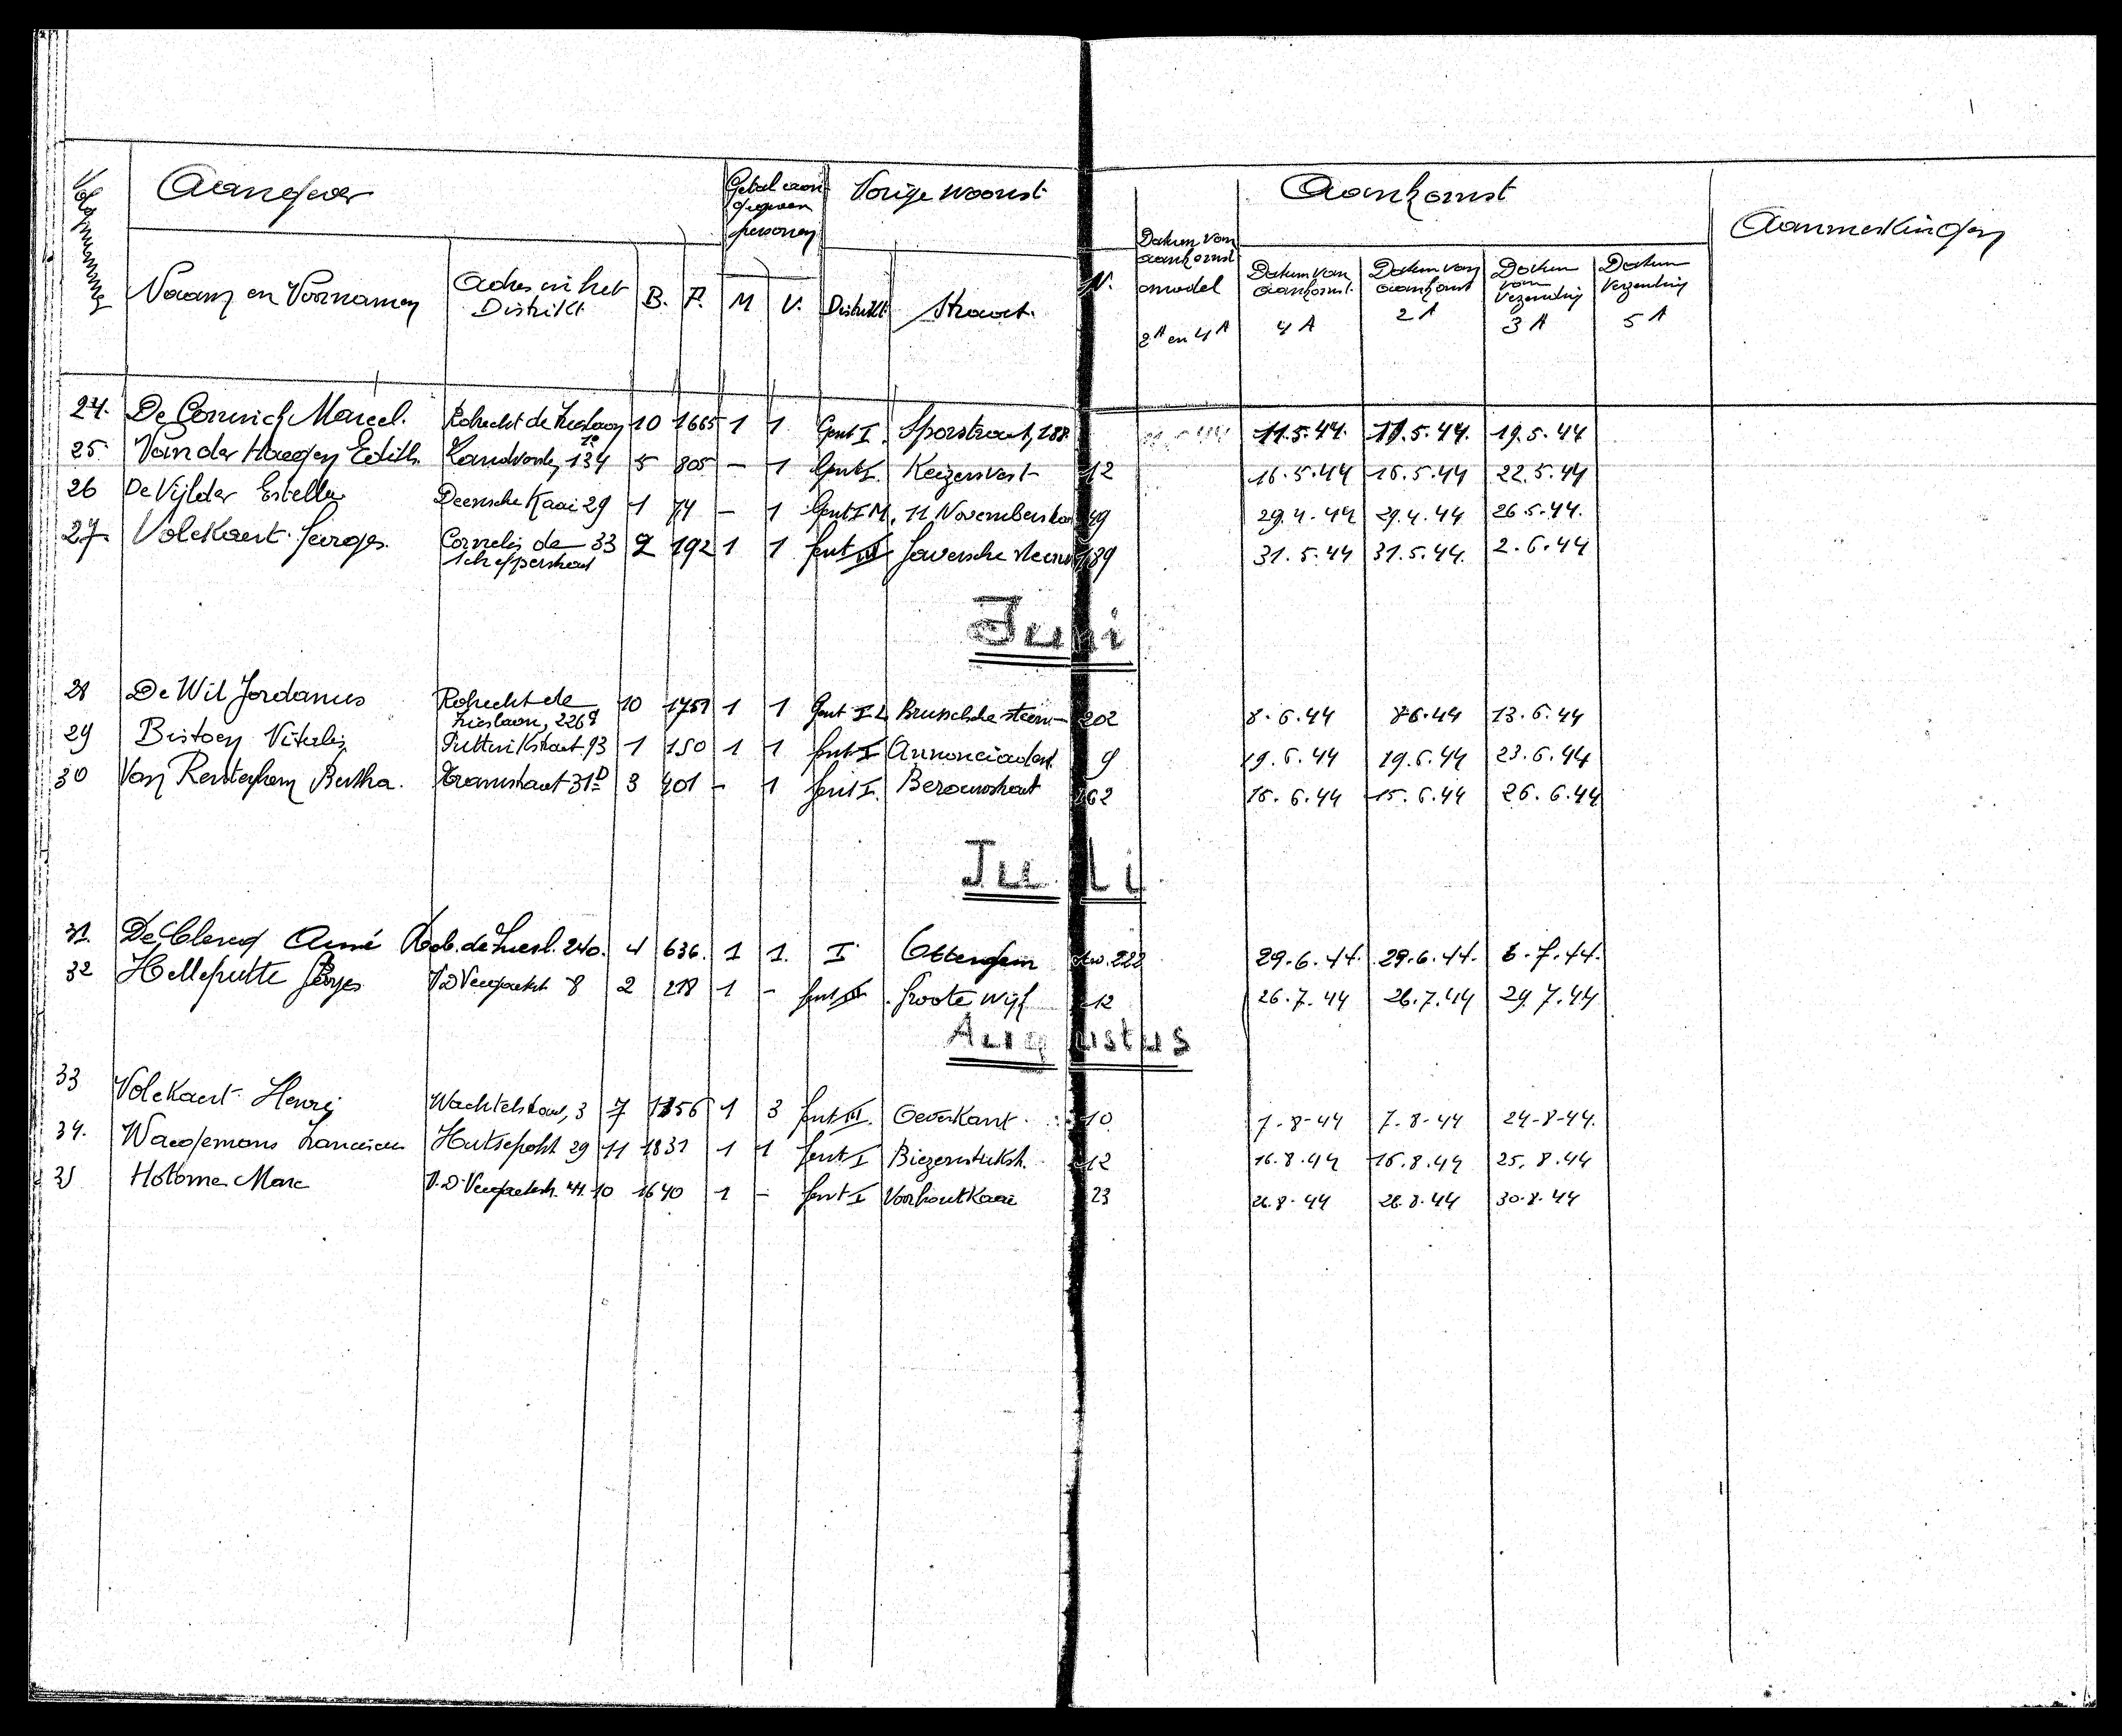 Volgnummer Aangever Getal aangegeven personen Vorige woonst Aankomst Aanmerkingen
Naam en Voornamen Adres in het Distrikt B. F. M V. Distrikt Straat N. Datum van aankomst model 2A en 4A Datum van aankomst 4 A Datum van aankomst 2 A Datum van Verzending 3 A Datum Verzending 5 A
24. De Connick Marcel. Robrecht de 10 1665 1 1 Gent I. Sporstraat, 188 11.5.44. 11.5.44. 19.5.44
25. Van der Haegen Edith. Zandvoorde, 134 5 805 - 1 Gent I. Keizersvest 12 16.5.44 16.5.44 22.5.44
26 De Vijlder Estella Deensche Kaai 29 1 74 - 1 Gent I M. 11 Novemberstra 49 29.4.44 29.4.44 26.5.44.
27. Volckaert Georges. Cornelis de 33 2 192 1 1 Gent III 189 31.5.44 31.5.44. 2.6.44
Schepperstraat
Juni
28 De Wil Jordanus Robrecht de 10 1751 1 1 Gent I L Brusschde steenw 202 8.6.44 8.6.44 13.6.44
29 Vitalis 93 1 150 1 1 Gent I Annonciadest. 9 19.6.44 19.6.44 23.6.44
30 Van Renterghem Bertha. Tramstraat 31D 3 401 - 1 Gent I. 162 15.6.44 15.6.44 26.6.44
Juli
31. De Clercq Aimé Rob. de Friesl. 240. 4 636. 1 1. I Ottergem stw. 222 29.6.44. 29.6.44. 6.7.44.
32 Helleputte Georges 8 2 218 1 - Gent III. Groote Wijf 12 26.7.44 26.7.44 29.7.44
Augustus
33 Volckaert Henri Wachtelstraat, 3 7 1256 1 3 Gent III. Oeverkant. 10 7-8-44 7.8-44 24-8-44.
34. Waegemans Franciscus Hutsepotst 29 11 1831 1 1 Gent I Biezenstukstr. 12 16.8.44 16.8.44 25.8.44
35 Marc 44. 10 1640 1 - Gent I Voorhoutkaai 23 26.8.44 26.8.44 30.8.44